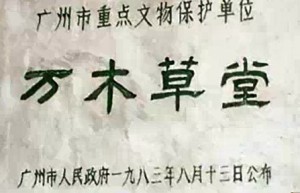 广州市重点文物保护单位
万木草堂
广州市人民政府一九八三年八月十三日公布